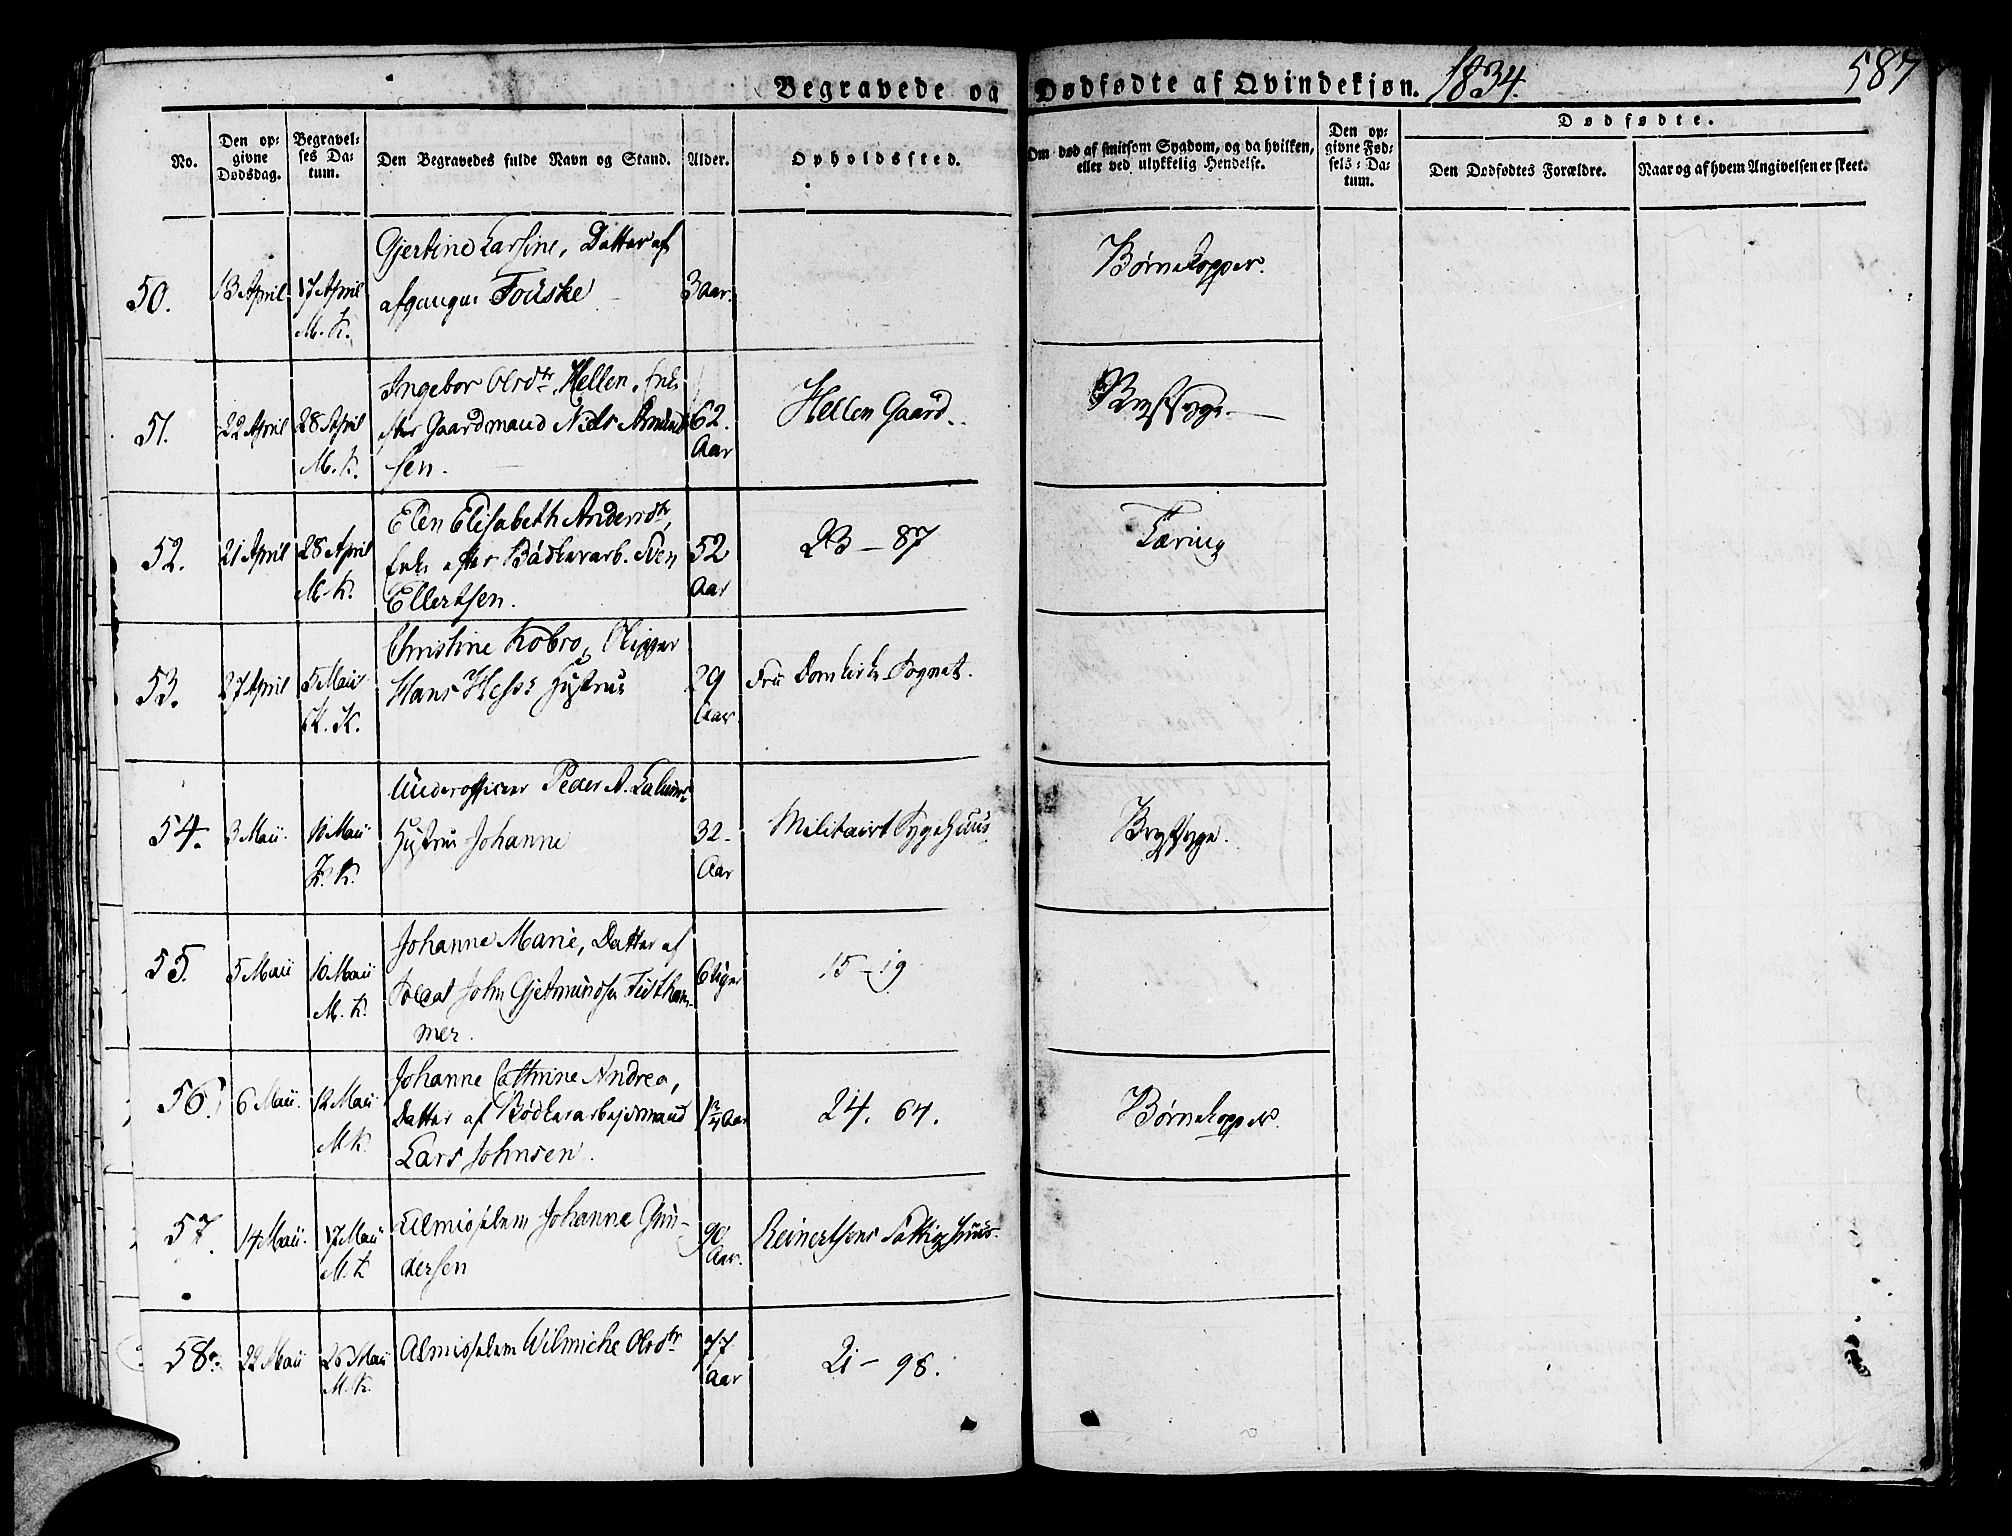 Begravede og Dødfødte af Qvindekjøn. 1834. 587
No.
Den opgivne Dødsdag.
Begravelses Datum.
Den Begravedes fulde Navn og Stand.
Alder.
Opholdssted.
Om død af smitsom Sygdom, og da hvilken, eller ved ulykkelig Hendelse.
Den opgivne Fødsels-Datum.
Dødfødte.
Den Dødfødtes Forældre.
Naar og af hvem Angivelsen er skeet.
50. 13 April 17 April M. K.
Gjertine Larsine, Datter af
afgangne Fouske
3 Aar.
Børnekopper.
51. 22 April 28 April M. K.
Ingebor Olsdtr Hellen, Enke
efter Gaardmand Niels
sen.
62. Aar
Hellen Gaard.
Brystsyge.
52. 21 April 28 April M. K.
Elen Elisabeth Andersdtr,
Enke efter Bødkerarb. Sven
Ellertsen.
52 Aar
23 – 87
Tæring
53. 27 April 5 Maii K. K.
Christine Kobro, Skipper
Hans Hess Hustrue
29 Aar
Fra Domkirke Sognet.
54. 3 Maii. Maii K.
Underofficeer Peder A.
Hustrue Johanne
32. Aar
Militairt Sygehuus
Brystsyge.
55. 5 Maii 10 Maii M. K.
Johanne Marie, Datter af
Soldat John Gjetmundsen Tvethammer.
6 Uger
15 – 19
56. 6 Maii. 12 Maii M K.
Johanne Cathrine Andrea,
Datter af Bødkerarbejdsmand
Lars Johnsen.
Aar
24. 64.
Børnekopper.
57. 14 Maii. 17 Maii M. K
Almisselem Johanne Gundersen
90 Aar.
Reinertsens Fattighuus.
58. 22 Maii 26 Maii M. K.
Almisselem Wilmiche Olsdtr
77 Aar
21 – 98.